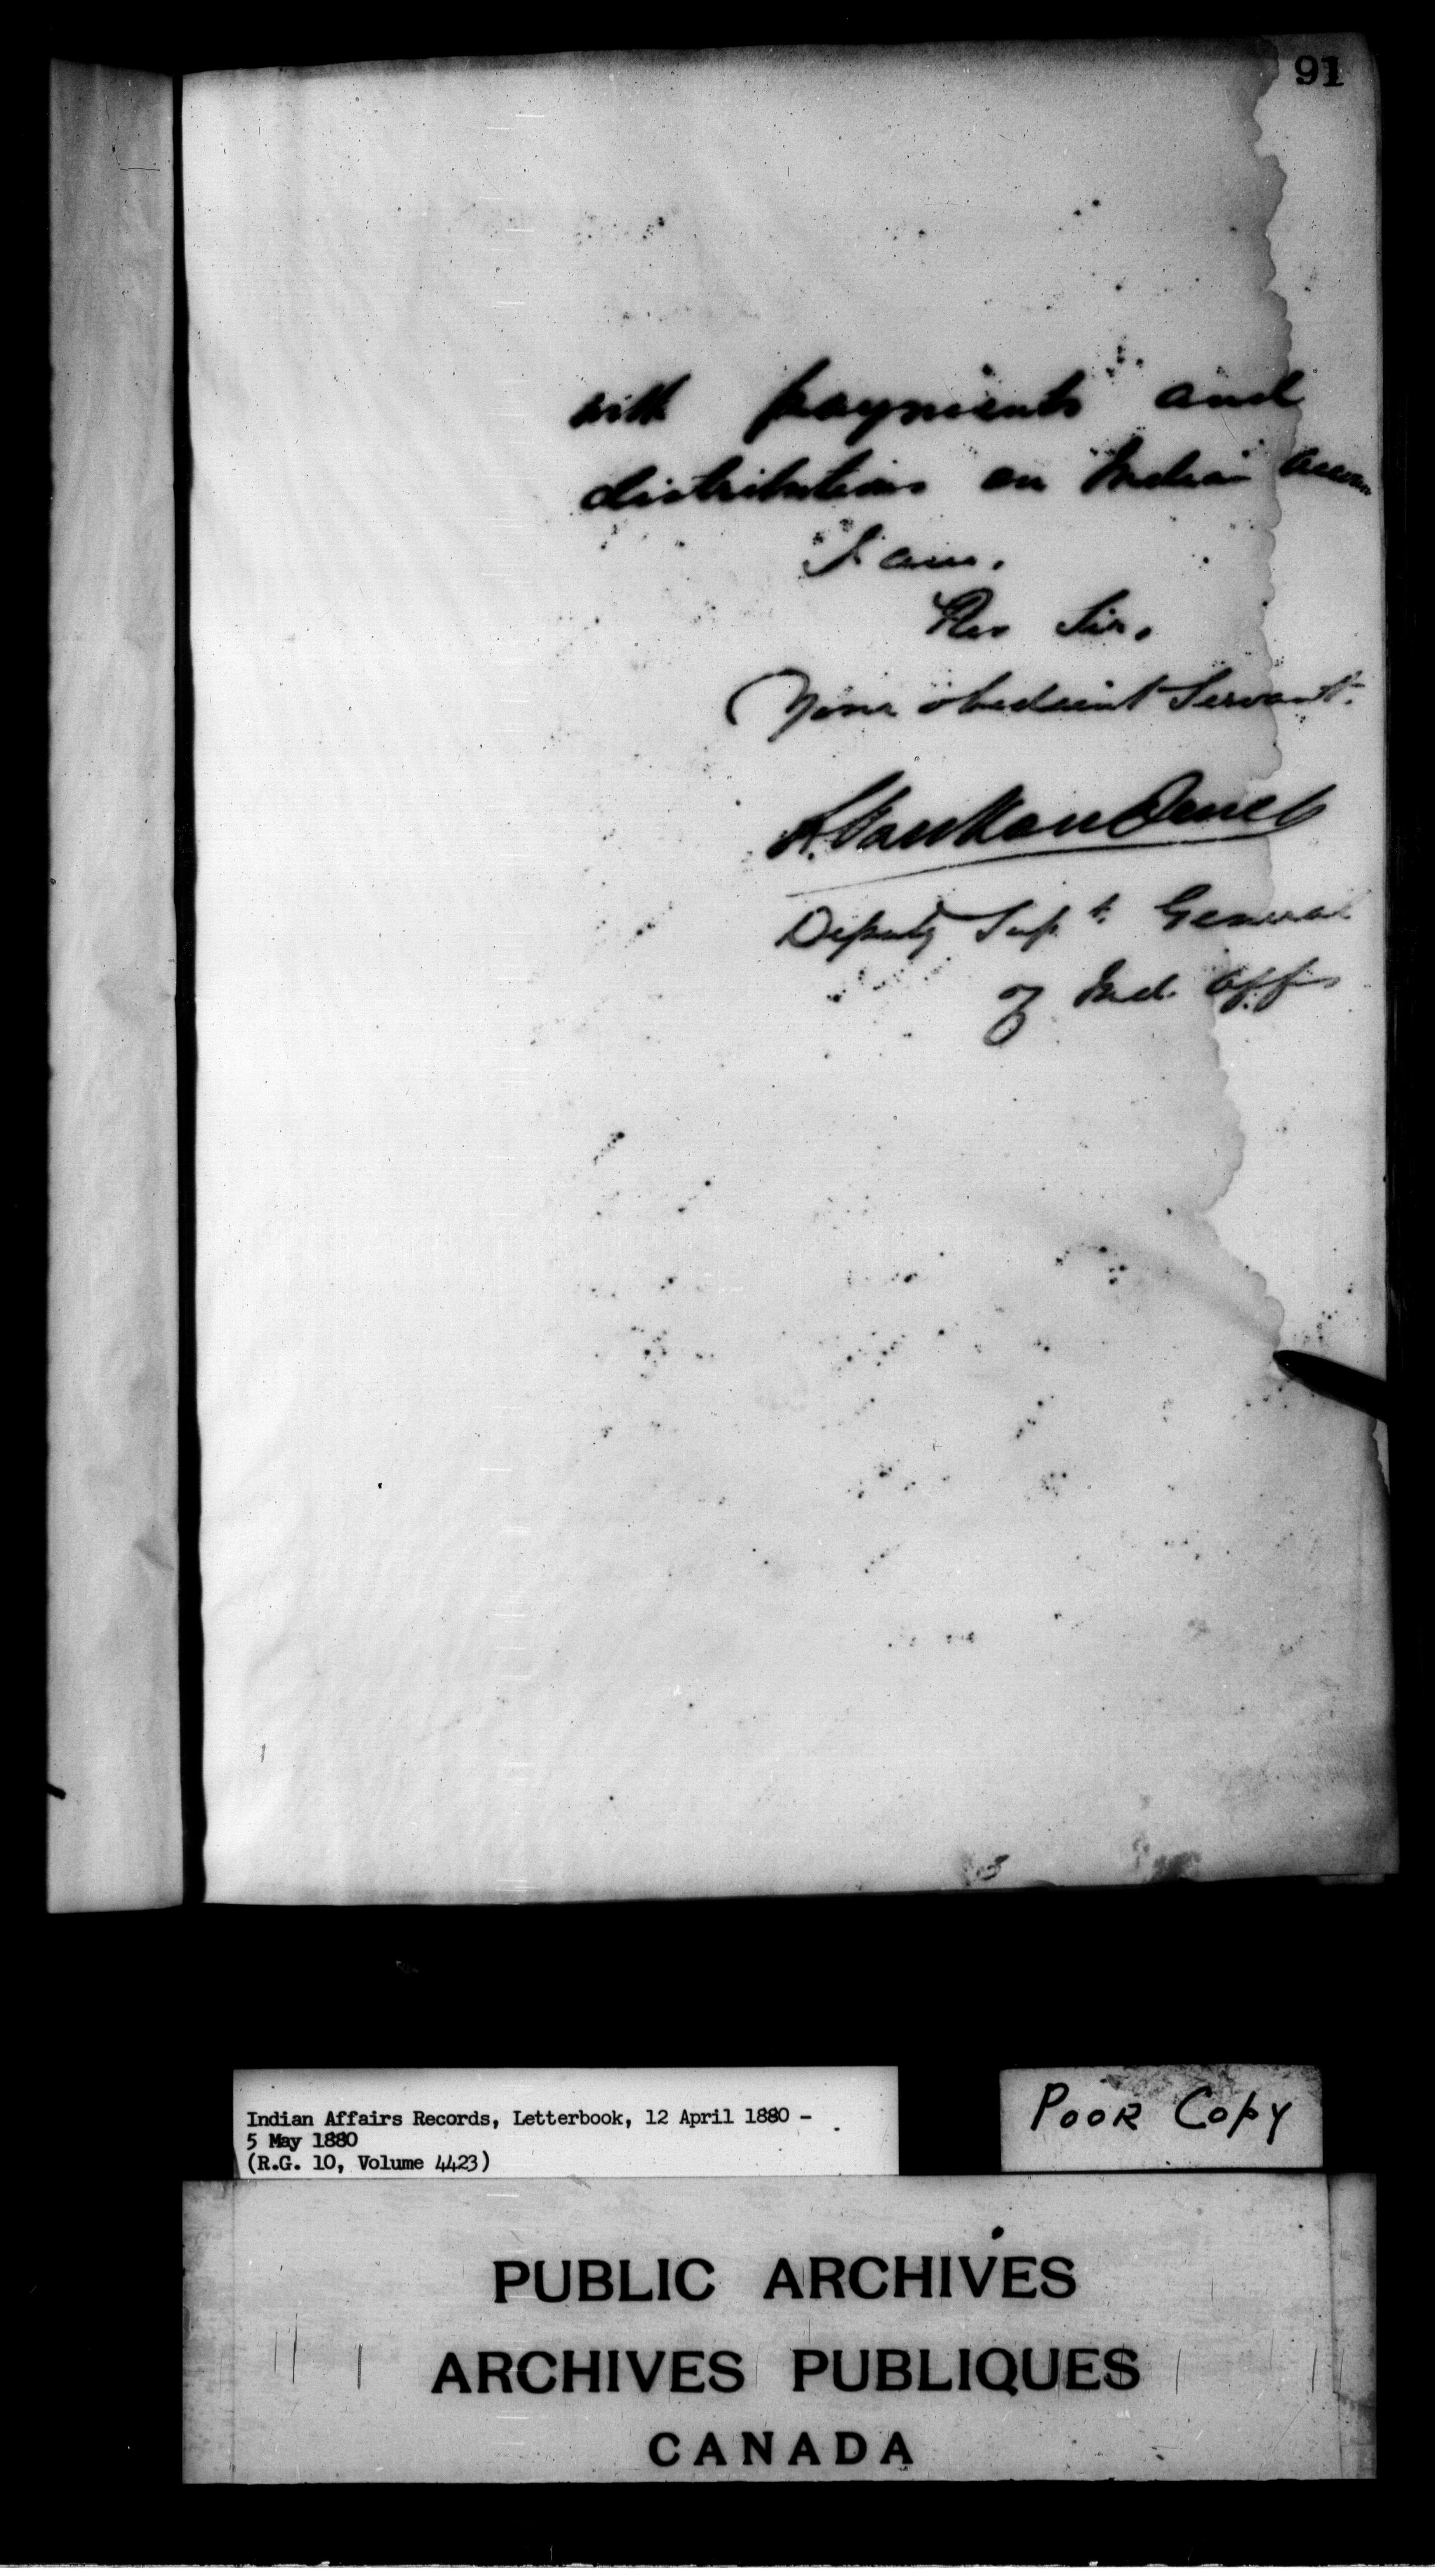 91
with payments and
distributions on Indian
I am,
Rev Sir,
Your obedient Servant.
L. VanKoughnet
Deputy Supt General
of Ind. Affs
Indian Affairs Records, Letterbook, 12 April 1880 -
5 May 1880
(R.G. 10, Volume 4423)
POOR COPY
PUBLIC ARCHIVES
ARCHIVES PUBLIQUES
CANADA